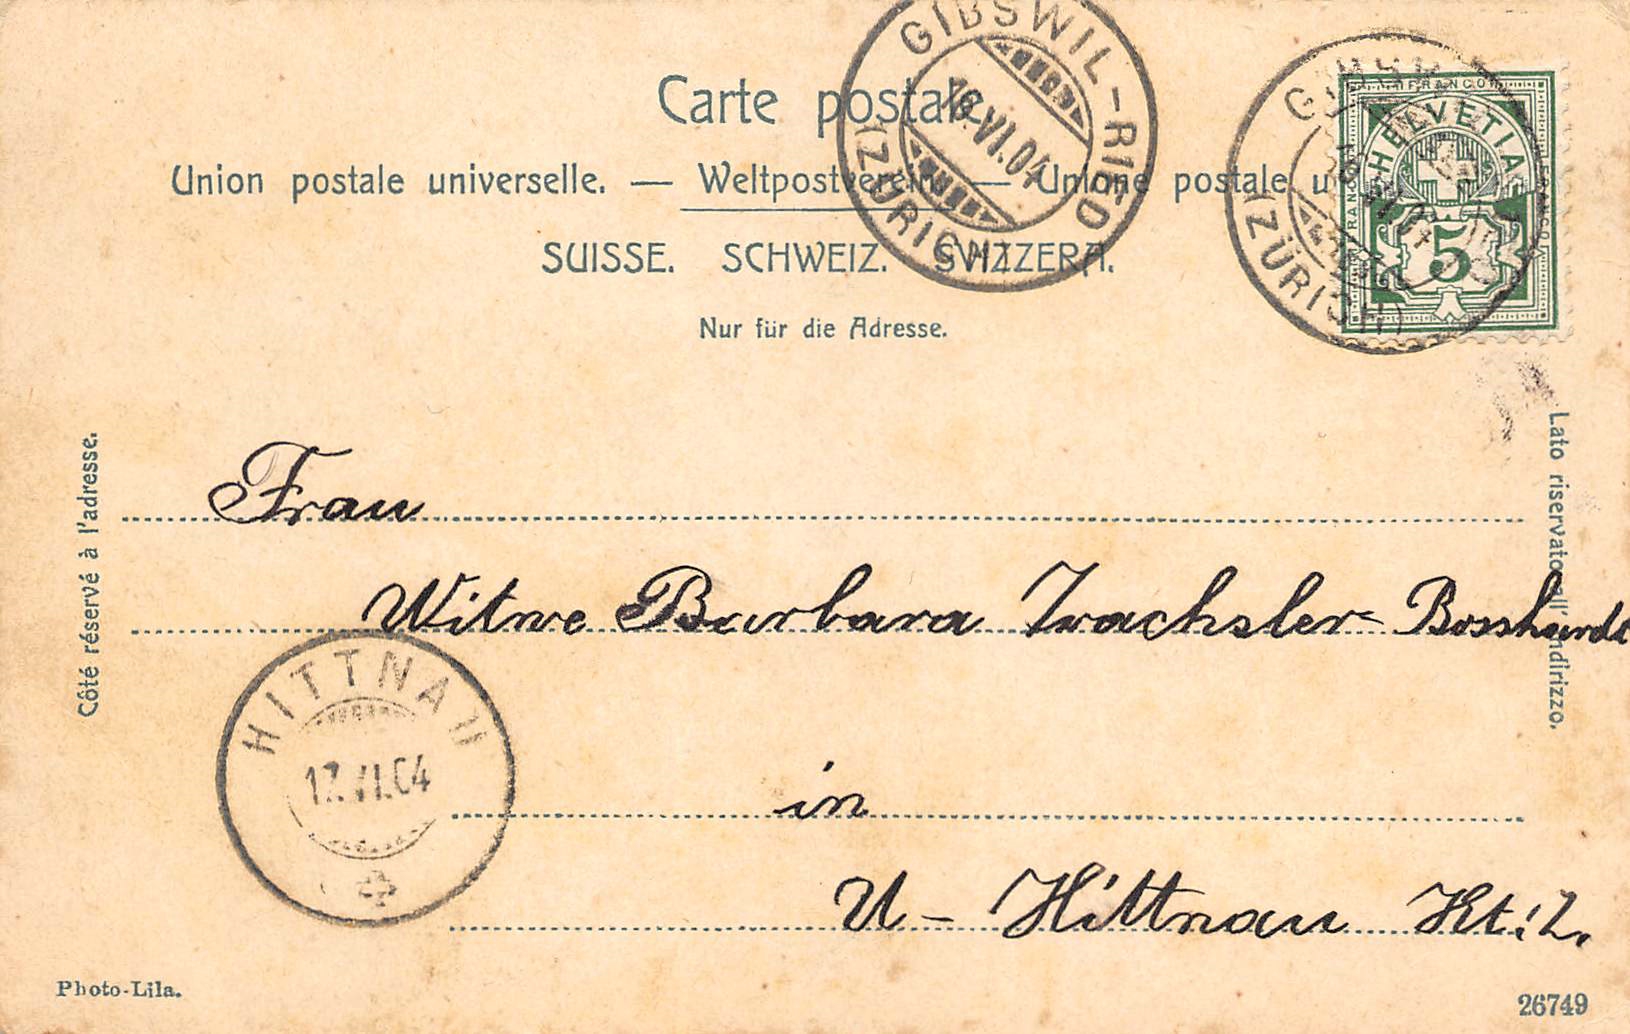 GIBSWIL-RIED
16.VI.04
(ZÜRICH)
Carte postale.
FRANCO
HELVETIA
5
(ZÜRICH)
Union postale universelle. — Weltpostverein — Unione postale
SUISSE. SCHWEIZ. SVIZZERA.
Nur für die Adresse.
Côté réservé à l'adresse.
Lato riservato all' indirizzo.
Frau
Witwe Barbara Wachsler-Bosshardt
HITTNAU
17.VI.04
in
U - Hittnau Kt. Z.
Photo-Lila.
26749